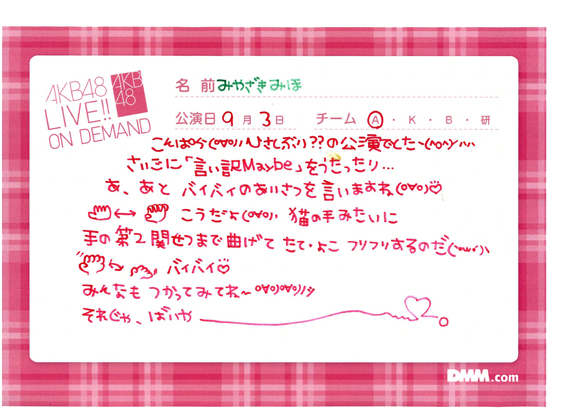 AKB48
LIVE!!
ON DEMAND
AKB
48
名 前 みやざきみほ
公演日 9 月 3 日 チーム A・K・B・研
こんぱ々(o∀o)ﾉ ひさしぶり??の公演でした~(^o^)
さいごに「言い訳Maybe」をうたったり…
あ、あと バイバイのあいさつを言いますね(o∀o)♡
↔ こうだよ(o∀o)ﾉ 猫の手みたいに
手の第2関せつまで曲げて たて・よこ フリフリするのだ
バイバイ♡
みんなも つかってみてね~ o∀o)o∀o)ﾉｼ
それじゃ、ばいや
DMM.com